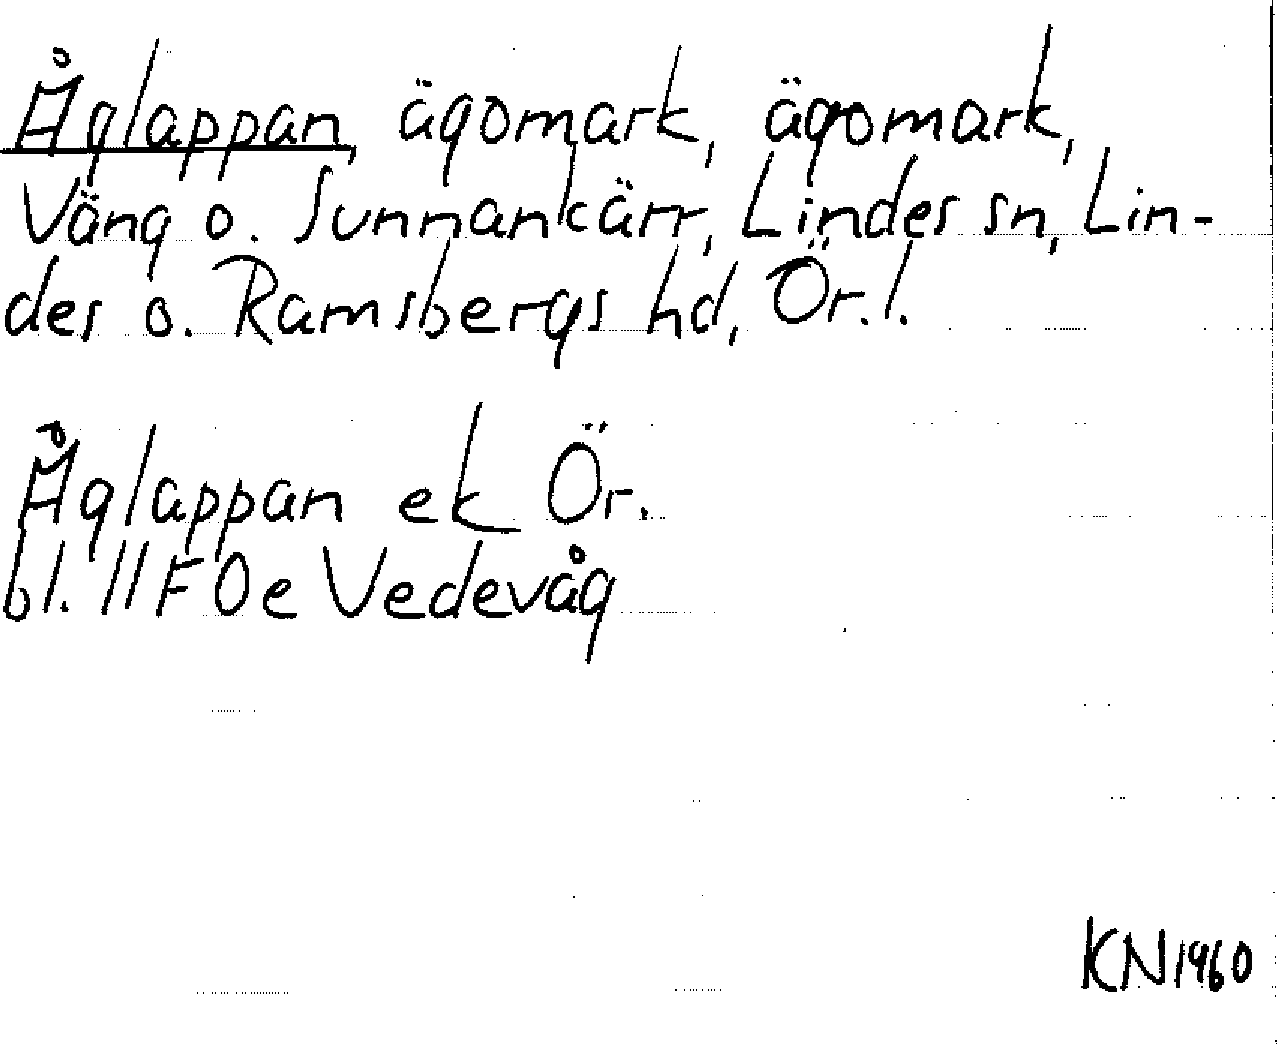 Åglappan, ägomark, ägomark,
Väng o. Sunnankärr, Lindes sn, Lin-
des o. Ramsbergs hd, Ör. l.
Åglappan ek Ör.
bl. 11F 0e Vedevåg
KN 1960